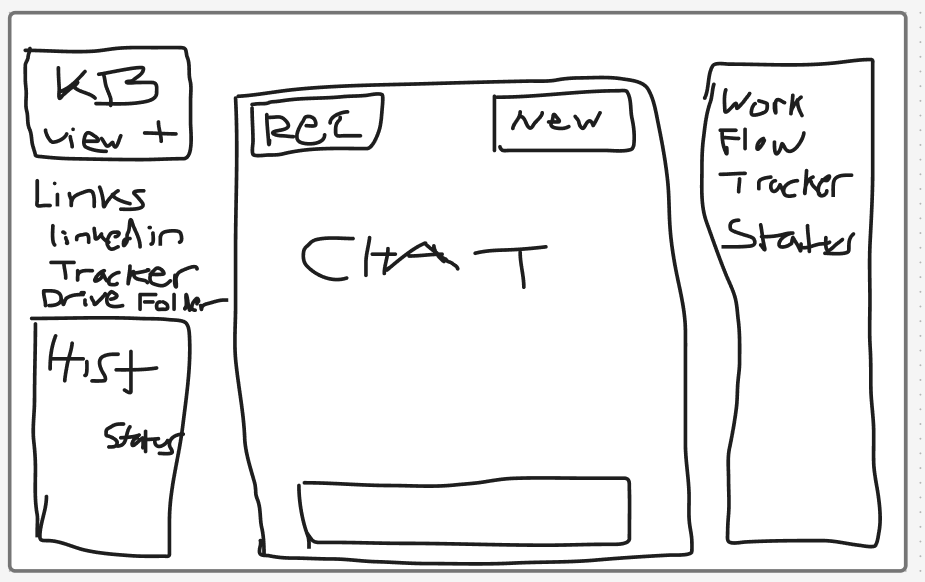 KB
View +
Links
linkedin
Tracker
Drive Folder
Hist
Status
REC
New
CHAT
Work
Flow
Tracker
Status